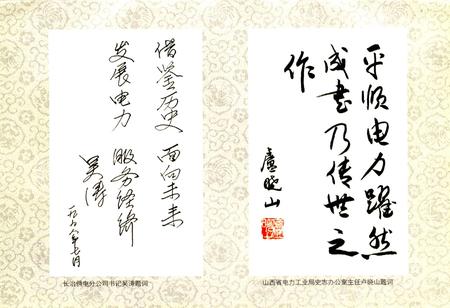 借鉴历史 面向未来
发展电力 服务经济
吴涛
一九九八年七月
长治供电分公司书记吴涛题词
平顺电力躍然
成书乃传世之
作
盧晓山
山西省电力工业局史志办公室主任卢晓山题词